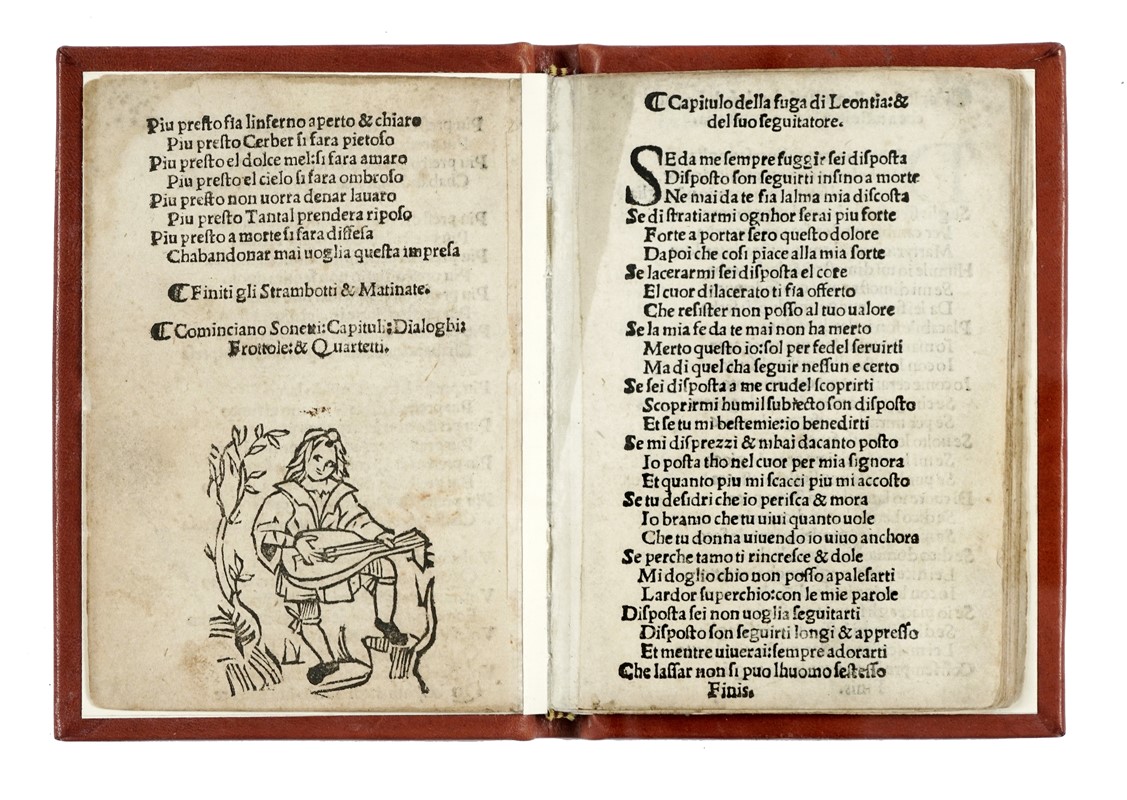 Piu presto fia linferno aperto & chiaro
Piu presto Cerber si fara pietoso
Piu presto el dolce mel:si fara amaro
Piu presto el cielo si fara ombroso
Piu presto non uorra denar lauaro
Piu presto Tantal prendera riposo
Piu presto a morte si fara diffesa
Chabandonar mai uoglia questa impresa
¶ Finiti gli Strambotti & Matinate.
¶ Cominciano Sonetti:Capituli:Dialoghi:
Frottole:& Quartetti.
¶ Capitulo della fuga di Leontia:&
del suo seguitatore.
SE da me sempre fuggir sei disposta
Disposto son seguirti insino a morte
Ne mai da te fia lalma mia discosta
Se di stratiarmi ognhor serai piu forte
Forte a portar sero questo dolore
Dapoi che cosi piace alla mia sorte
Se lacerarmi sei disposta el core
El cuor dilacerato ti fia offerto
Che resister non posso al tuo ualore
Se la mia fe da te mai non ha merto
Merto questo io:sol per fedel seruirti
Ma di quel cha seguir nessun e certo
Se sei disposta a me crudel scoprirti
Scoprirmi humil subiecto son disposto
Et se tu mi bestemie:io benedirti
Se mi disprezzi & mhai dacanto posto
Io posta tho nel cuor per mia signora
Et quanto piu mi scacci piu mi accosto
Se tu desidri che io perisca & mora
Io bramo che tu uiui quanto uole
Che tu donna uiuendo io uiuo anchora
Se perche tamo ti rincresce & dole
Mi doglio chio non posso apalesarti
Lardor superchio:con le mie parole
Disposta sei non uoglia seguitarti
Disposto son seguirti longi & appresso
Et mentre uiuerai:sempre adorarti
Che lassar non si puo lhuomo sestesso
Finis.